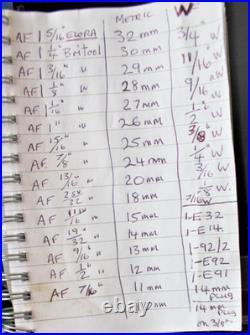 METRIC W
AF 1 5/16" ELORA 32mm 3/4" W
AF 1 1/4" Britool 30mm 11/16" W
AF 1 3/16" " 29mm 9/16" W
AF 1 1/8" " 28mm
AF 1 1/16" " 27mm 1/2" W
AF 1" " 26mm
AF 15/16" " 25mm 3/8" W
AF 7/8" " 24mm 1/4" W
AF 13/16" " 20mm 3/16 W
AF 25/32" " 18mm 1/8" W
7/16 W
AF 11/16" " 15mm 1-E32
AF 19/32" " 14mm 1-E14
AF 9/16" " 13mm 1-92/2
AF 1/2" " 12mm 1-E92
AF 7/16" " 11mm 1-E91
14mm
plug
14mm
plug
on 3/8"